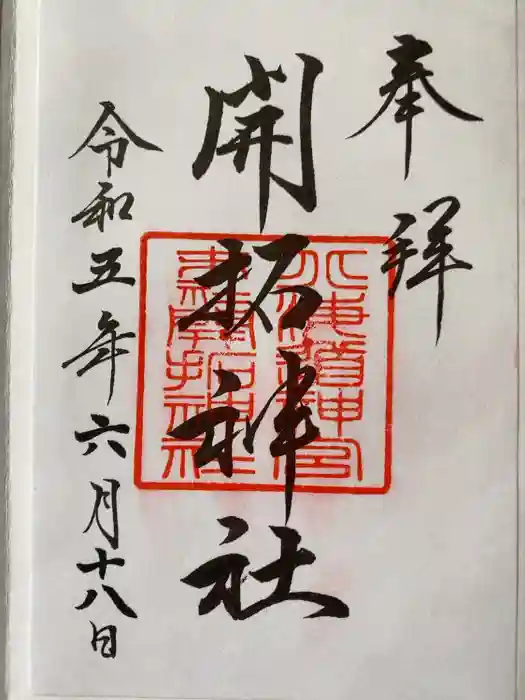 奉拝
開拓神社
北海道神宮
末社開拓神社
令和五年六月十八日